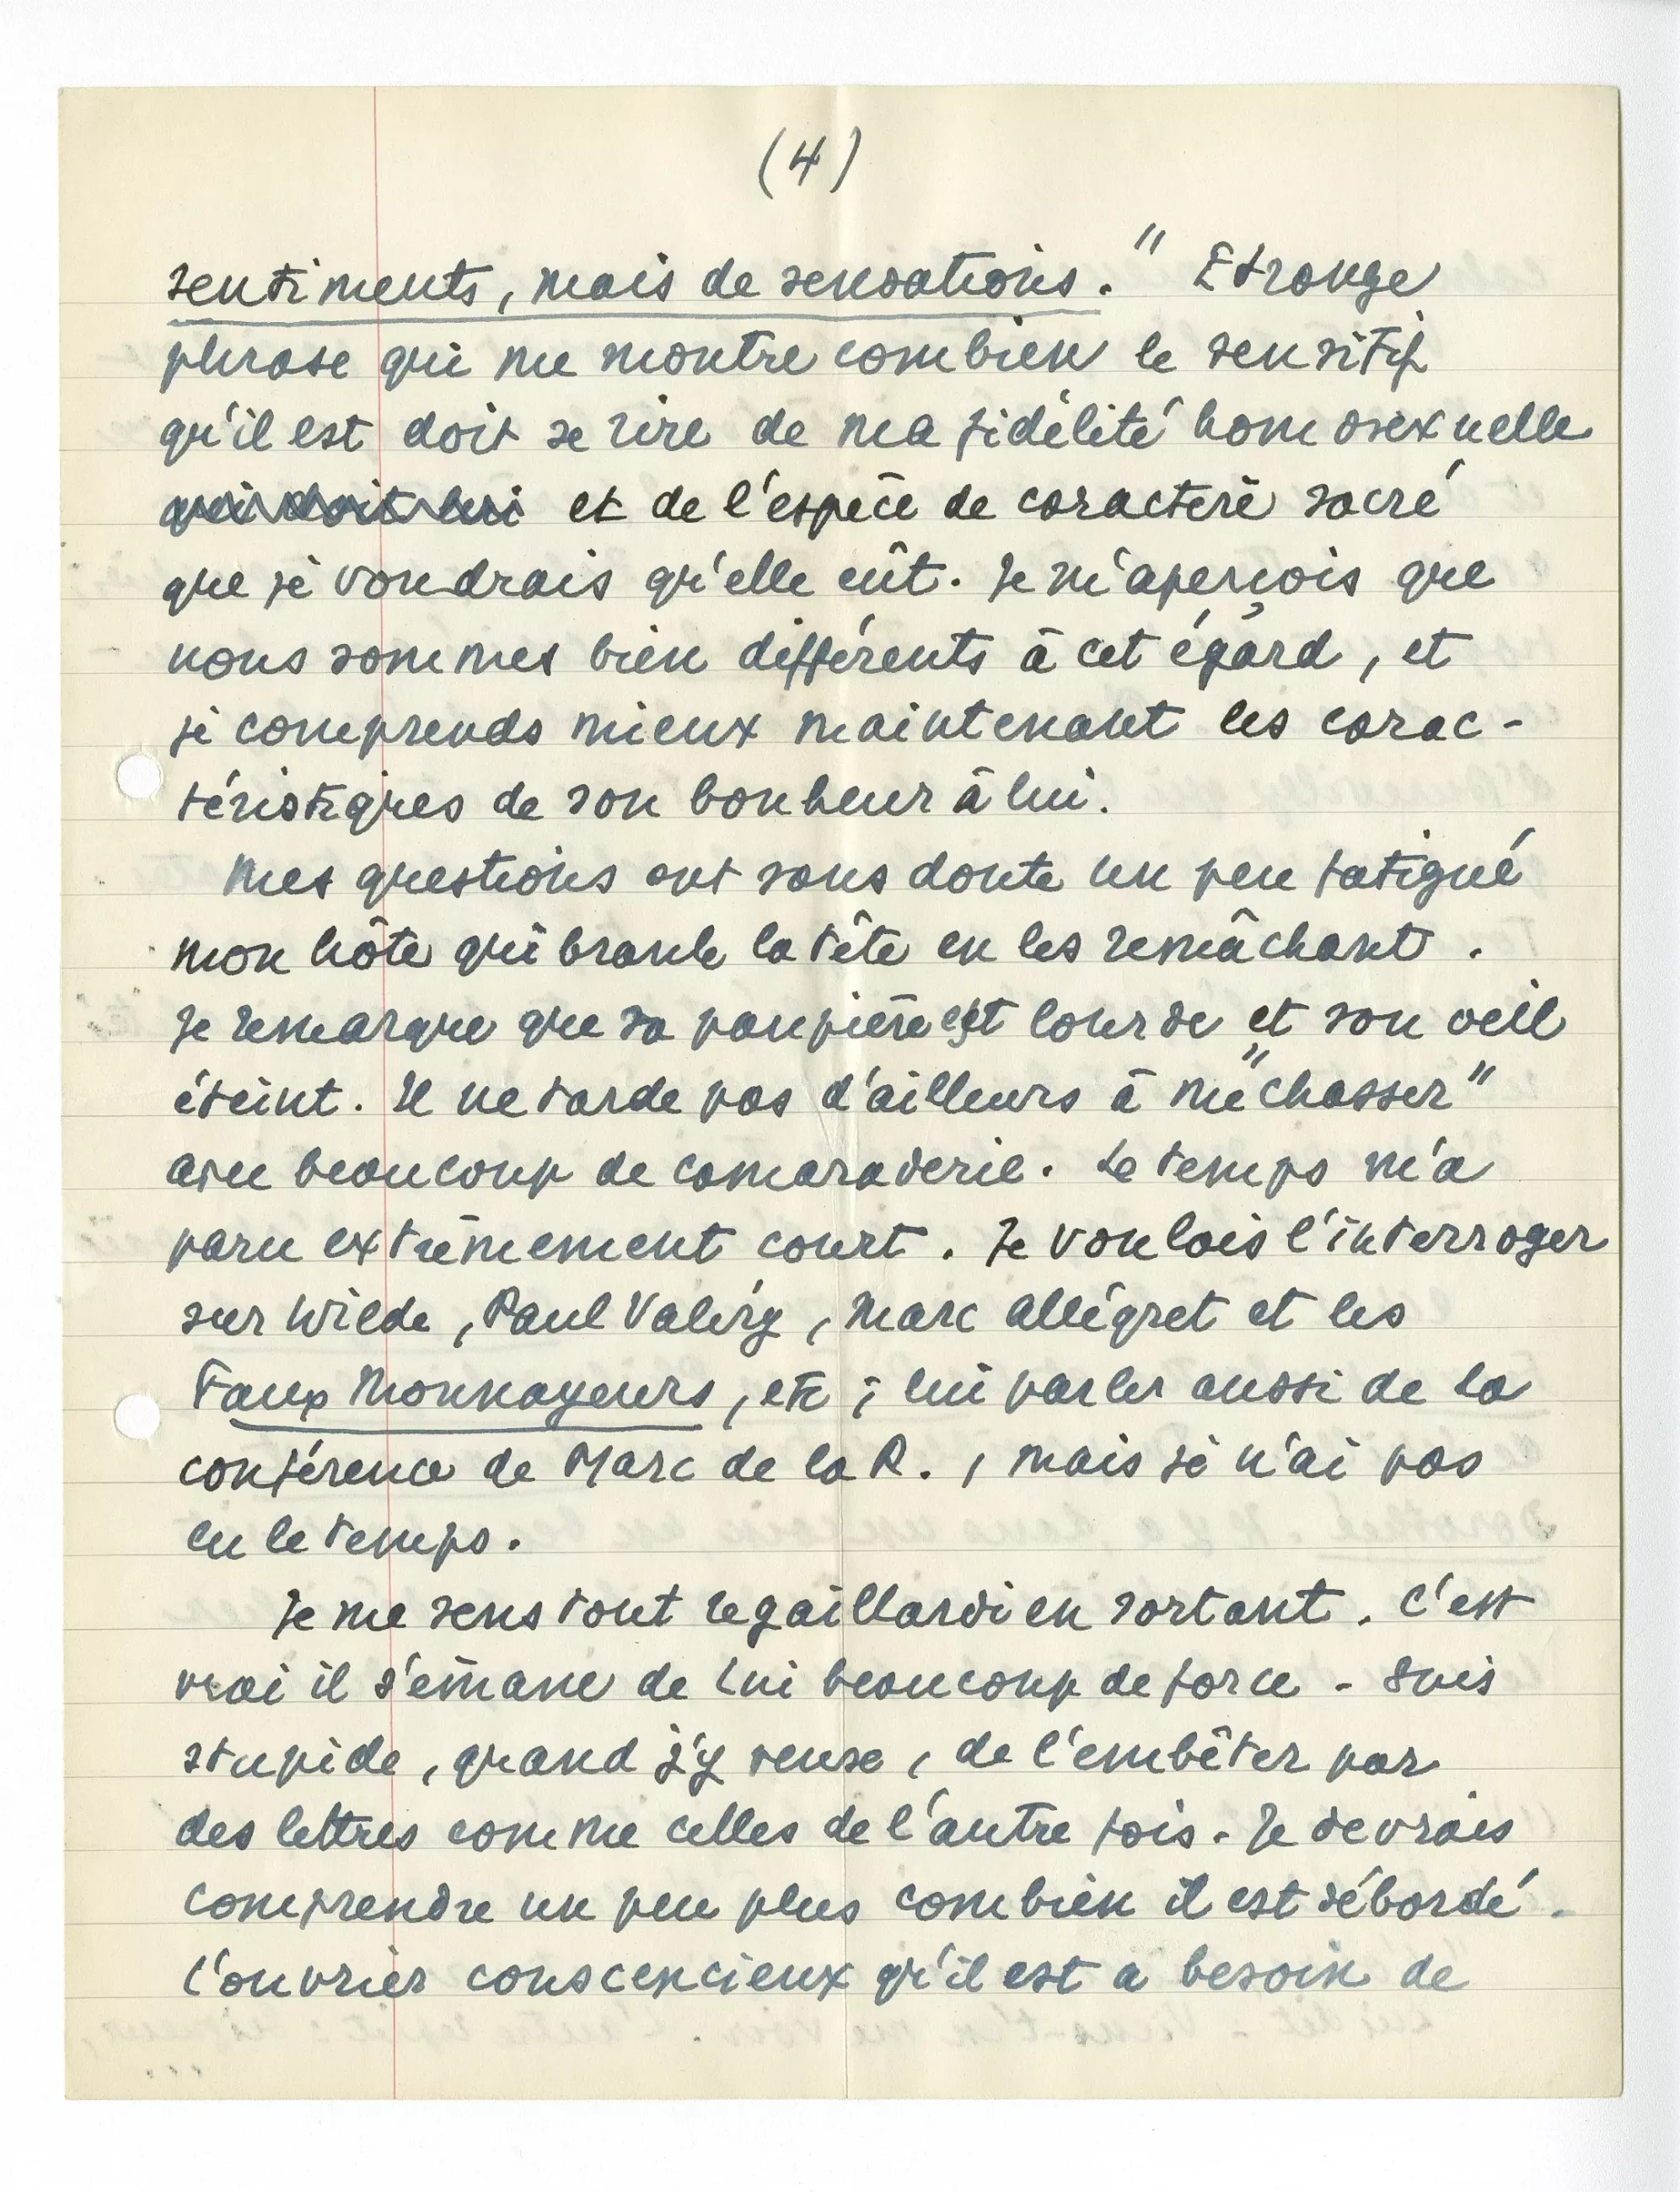 (4)
sentiments, mais de sensations." Etrange
phrase qui me montre combien le sensitif
qu'il est doit se rire de ma fidélité homosexuelle
qui doit lui et de l'espèce de caractère sacré
que je voudrais qu'elle eût. Je m'aperçois que
nous sommes bien différents à cet égard, et
je comprends mieux maintenant les carac-
téristiques de son bonheur à lui.
Mes questions ont sans doute un peu fatigué
mon hôte qui branle la tête en les remâchant.
Je remarque que sa paupière est lourde et son oeil
éteint. Il ne tarde pas d'ailleurs à me "chasser"
avec beaucoup de camaraderie. Le temps m'a
paru extrêmement court. Je voulais l'interroger
sur Wilde, Paul Valéry, Marc Allégret et les
Faux Monnayeurs, etc; lui parler aussi de la
conférence de Marc de la R., mais je n'ai pas
eu le temps.
Je me sens tout regaillardi en sortant. C'est
vrai il s'émane de lui beaucoup de force - Suis
stupide, quand j'y pense, de l'embêter par
des lettres comme celles de l'autre fois. Je devrais
comprendre un peu plus combien il est débordé.
L'ouvrier conscencieux qu'il est a besoin de